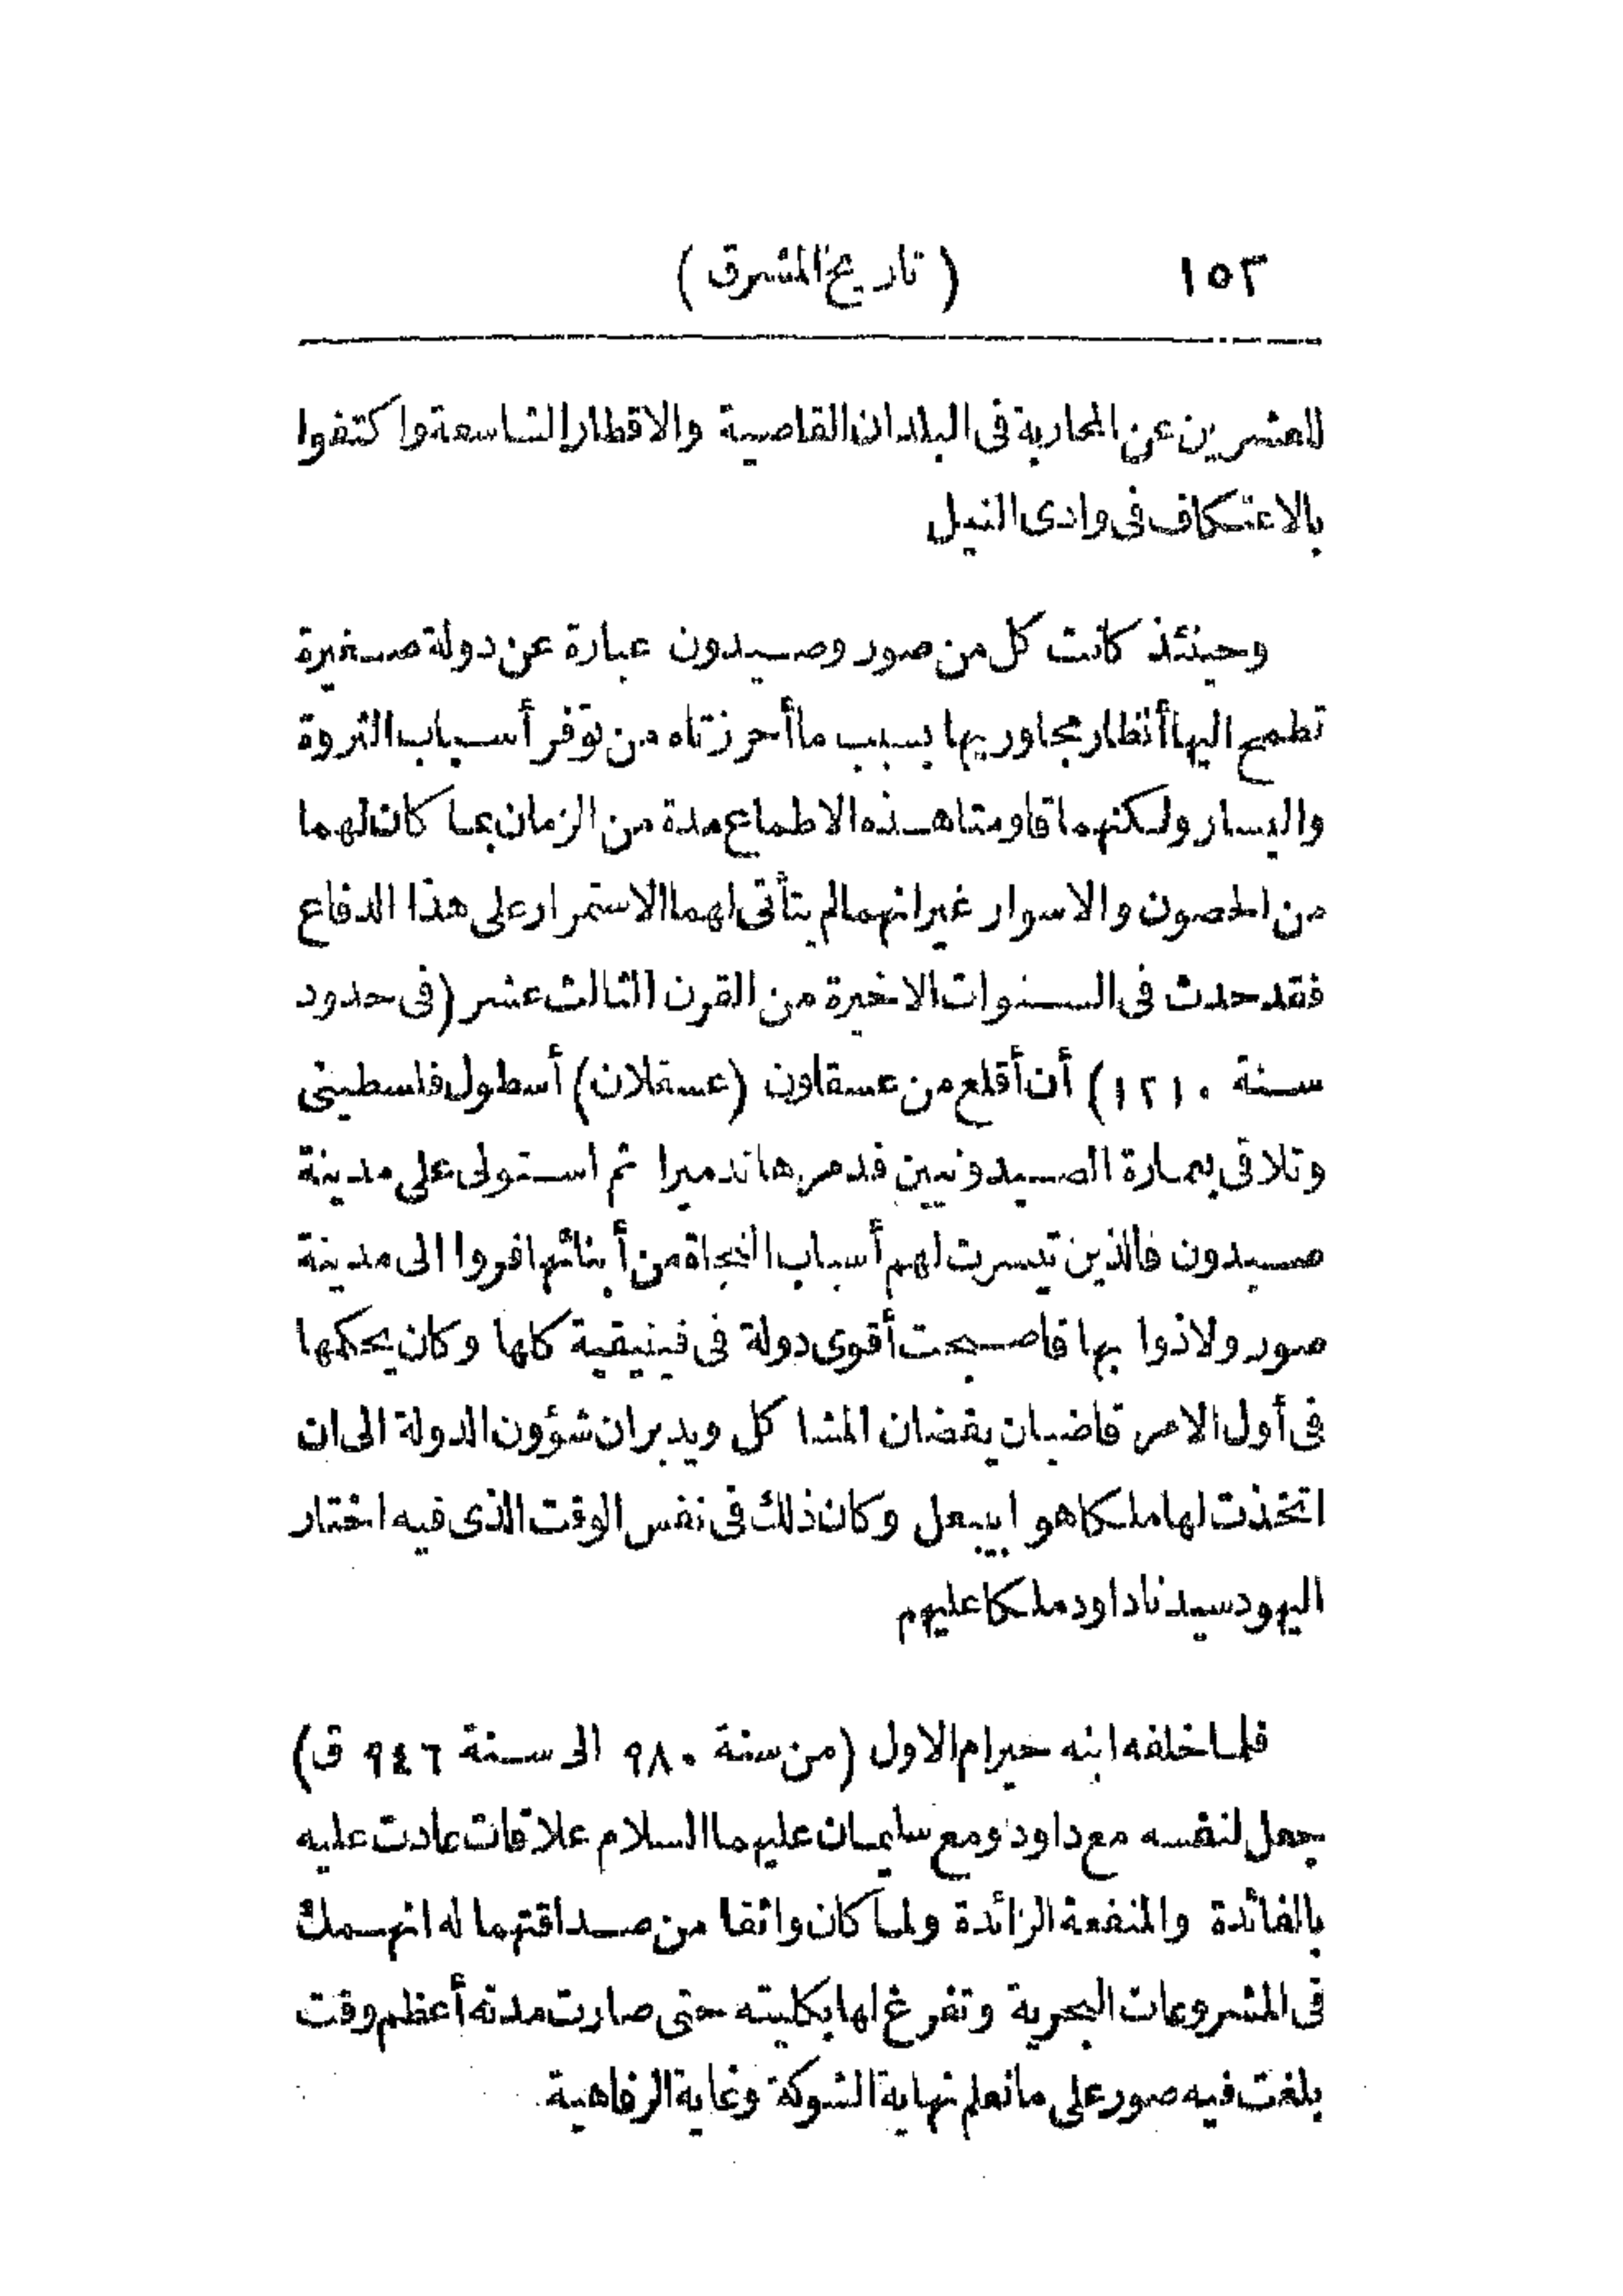 ١٥٢ ( تاريخ المشرق )
للعشرين عن المحاربة فى البلدان القاصية والاقطار الشاسعة واكتفوا
بالاعتكاف فى وادى النيل
وحينئذ كانت كل من صور وصيدون عبارة عن دولة صغيرة
تطمح اليها أنظار مجاوريها بسبب ما أحرزتاه من توفر أسباب الثروة
واليسار ولكنهما قاومتا هذه الاطماع مدة من الزمان بما كان لهما
من الحصون والاسوار غير انهما لم يتأتى لهما الاستمرار على هذا الدفاع
فقد حدث فى السنوات الاخيرة من القرن الثالث عشر (فى حدود
سنة ١٢١٠) أن أقلع من عسقلون (عسقلان) أسطول فلسطينى
وتلاقى بعمارة الصيدونيين فدمرها تدميرا ثم استولى على مدينة
صيدون فالذين تيسرت لهم أسباب النجاة من أبنائها فروا الى مدينة
صور ولاذوا بها فاصبحت أقوى دولة فى فينيقية كلها وكان يحكمها
فى أول الامر قاضيان يقضان المشاكل ويدبران شؤون الدولة الى ان
اتخذت لها ملكا هو ابيبعل وكان ذلك فى نفس الوقت الذى فيه اختار
اليهود سيدنا داود ملكا عليهم
فلما خلفه ابنه حيرام الاول (من سنة ٩٨٠ الى سنة ٩٤٦ ق)
جعل لنفسه مع داود ومع سليمان عليهما السلام علاقات عادت عليه
بالفائدة والمنفعة الزائدة ولما كان واثقا من صداقتهما له انهمك
فى المشروعات البحرية وتفرغ لها بكليته حتى صارت مدته أعظم وقت
بلغت فيه صور على ما نعلم نهاية الشوكة وغاية الرفاهية